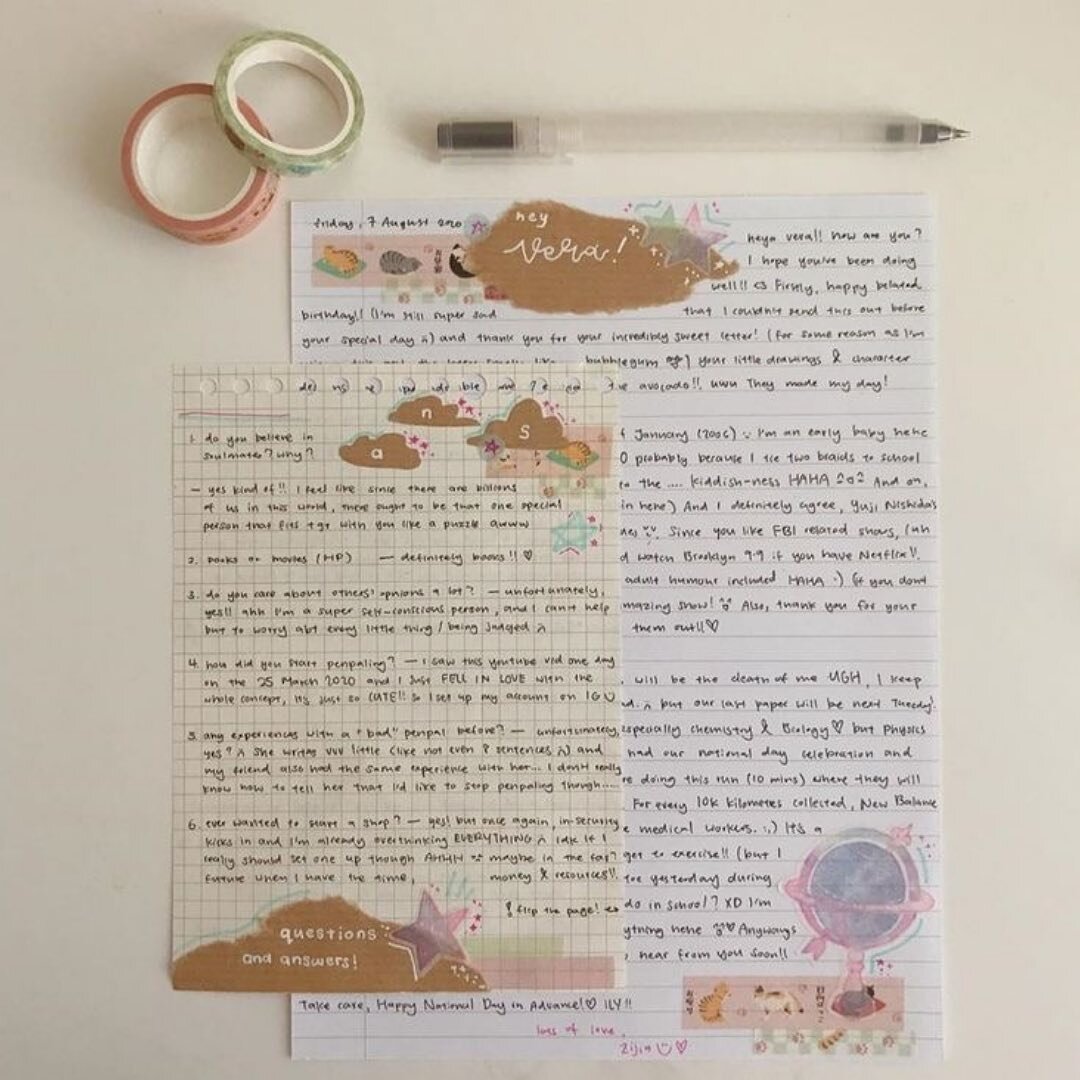 friday, 7 August 2020
hey
Vera!
heya vera!! how are you?
I hope you've been doing
well!! <3 Firstly, happy belated
birthday!! (I'm still super sad that I couldn't send this out before
your special day ;() and thank you for your incredibly sweet letter! (for some reason as I'm
bubblegum your little drawings & character
avocado!! uwu They made my day!
January (2006) I'm an early baby hehe
probably because I tie two braids to school
to the .... kiddish-ness HAHA And on,
in here) And I definitely agree, Yuji Nishida's
Since you like FBI related shows, (uh
watch Brooklyn 9-9 if you have Netflix!!
adult humour included HAHA :) (if you don't
amazing show! Also, thank you for your
them out!!♡
will be the death of me UGH, I keep
but our last paper will be next Tuesday!
especially chemistry & Biology♡ but Physics
had our national day celebration and
doing this run (10 mins) where they will
For every 10k kilometres collected, New Balance
medical workers. :,) It's a
get to exercise!! (but I
yesterday during
do in school? XD I'm
hehe ♡ Anyways
hear from you soon!!
Take care, Happy National Day in Advance!♡ ILY!!
lots of love,
Zijin ♡
n
a
s
1. do you believe in
soulmates? why?
— yes kind of!! I feel like since there are billions
of us in this world, there ought to be that one special
person that fits tgt with you like a puzzle awww
2. books or movies (HP) — definitely books!! ♡
3. do you care about others' opnions a lot? — unfortunately,
yes!! ahh I'm a super self-conscious person, and I can't help
but to worry abt every little thing / being judged
4. how did you start penpaling? — I saw this youtube vid one day
on the 25 March 2020 and I just FELL IN LOVE with the
whole concept, it's just so CUTE!! So I set up my account on IG
5. any experiences with a "bad" penpal before? — unfortunately,
yes? She writes vvv little (like not even 8 sentences) and
my friend also had the same experience with her... I don't really
know how to tell her that I'd like to stop penpaling though.....
6. ever wanted to start a shop? — yes! but once again, in-security
kicks in and I'm already overthinking EVERYTHING idk if I
really should set one up though AHHH maybe in the far?
future when I have the time, money & resources!!
flip the page!
questions
and answers!